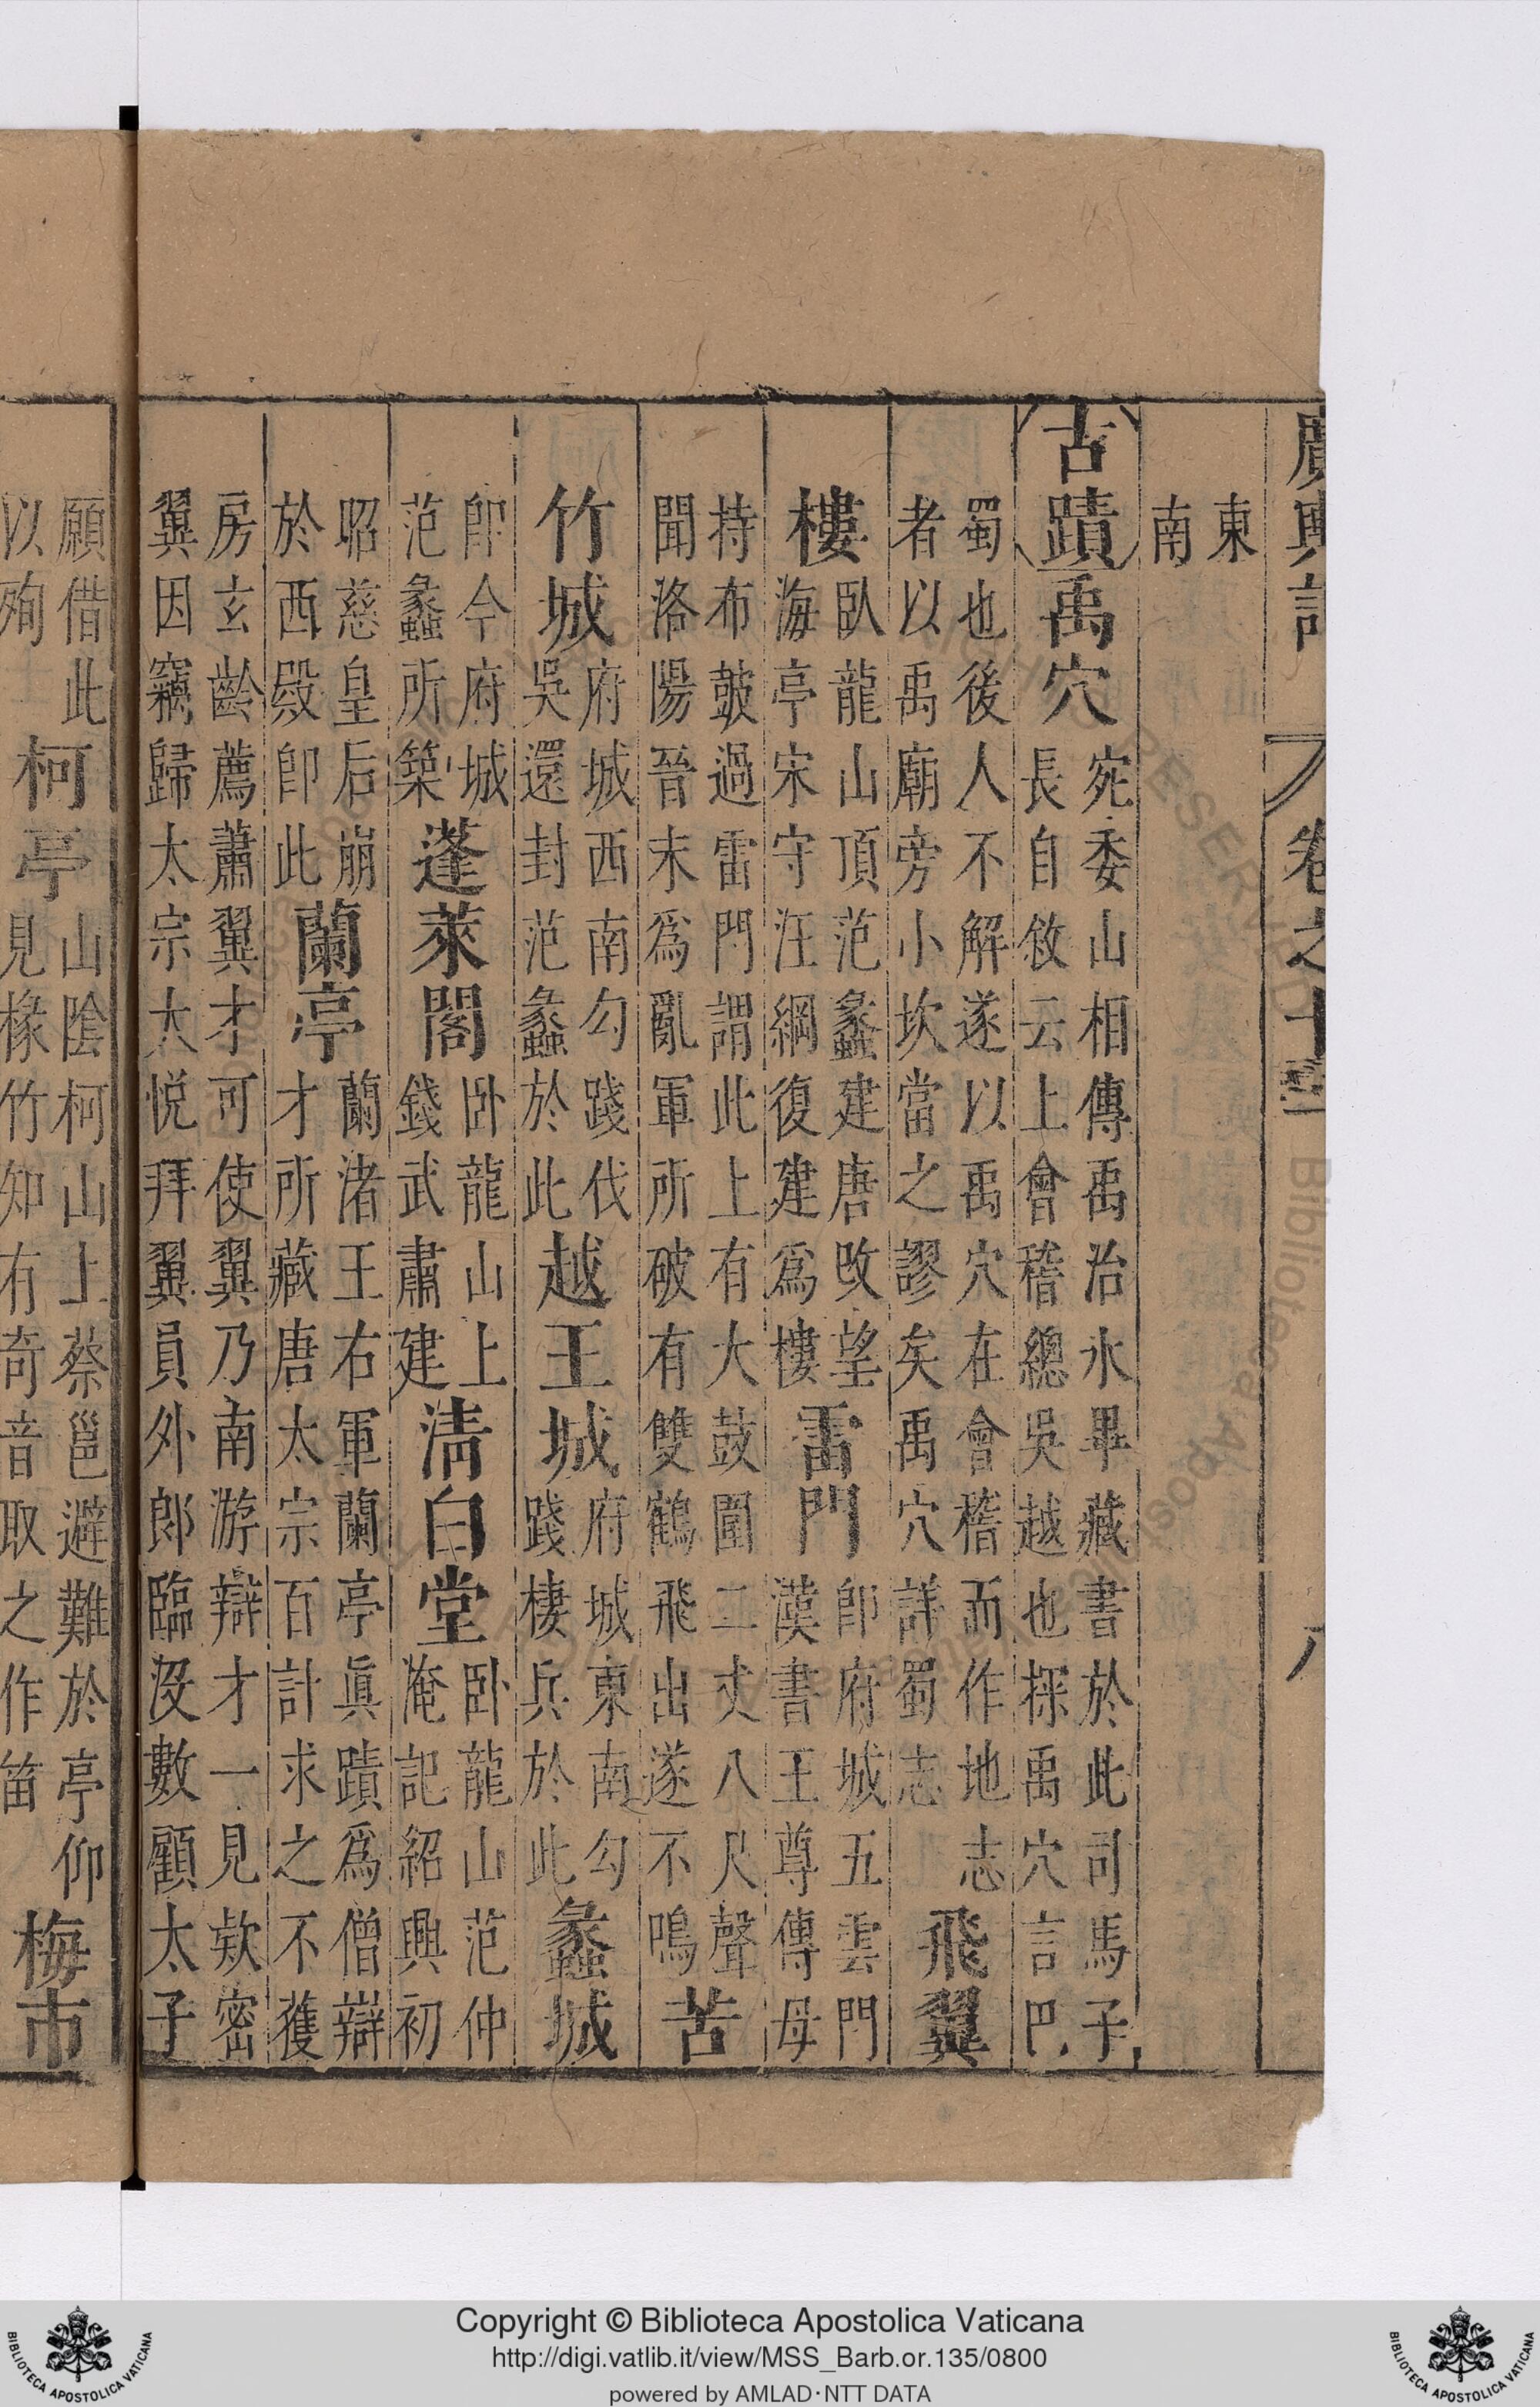 廣輿記 卷之十 八
東
南
古蹟禹穴
宛委山相傳禹治水畢藏書於此司馬子
長自敘云上會稽總吳越也探禹穴言巴
蜀也後人不解遂以禹穴在會稽而作地志
者以禹廟旁小坎當之謬矣禹穴詳蜀志
飛翼
樓
臥龍山頂范蠡建唐改望
海亭宋守汪綱復建爲樓
雷門
卽府城五雲門
漢書王尊傳毋
持布鼓過雷門謂此上有大鼓圍二丈八尺聲
聞洛陽晉末爲亂軍所破有雙鶴飛出遂不鳴
苦
竹城
府城西南勾踐伐
吳還封范蠡於此
越王城
府城東南勾
踐棲兵於此
蠡城
卽今府城
范蠡所築
蓬萊閣
臥龍山上
錢武肅建
淸白堂
臥龍山范仲
淹記紹興初
昭慈皇后崩
於西殿卽此
蘭亭
蘭渚王右軍蘭亭眞蹟爲僧辯
才所藏唐太宗百計求之不獲
房玄齡薦蕭翼才可使翼乃南游辯才一見欵密
翼因竊歸太宗大悅拜翼員外郎臨沒數顧太子
願借此
以殉
柯亭
山陰柯山上蔡邕避難於亭仰
見椽竹知有奇音取之作笛
梅市
Copyright © Biblioteca Apostolica Vaticana
http://digi.vatlib.it/view/MSS_Barb.or.135/0800
powered by AMLAD·NTT DATA
BIBLIOTECA APOSTOLICA VATICANA
BIBLIOTECA APOSTOLICA VATICANA